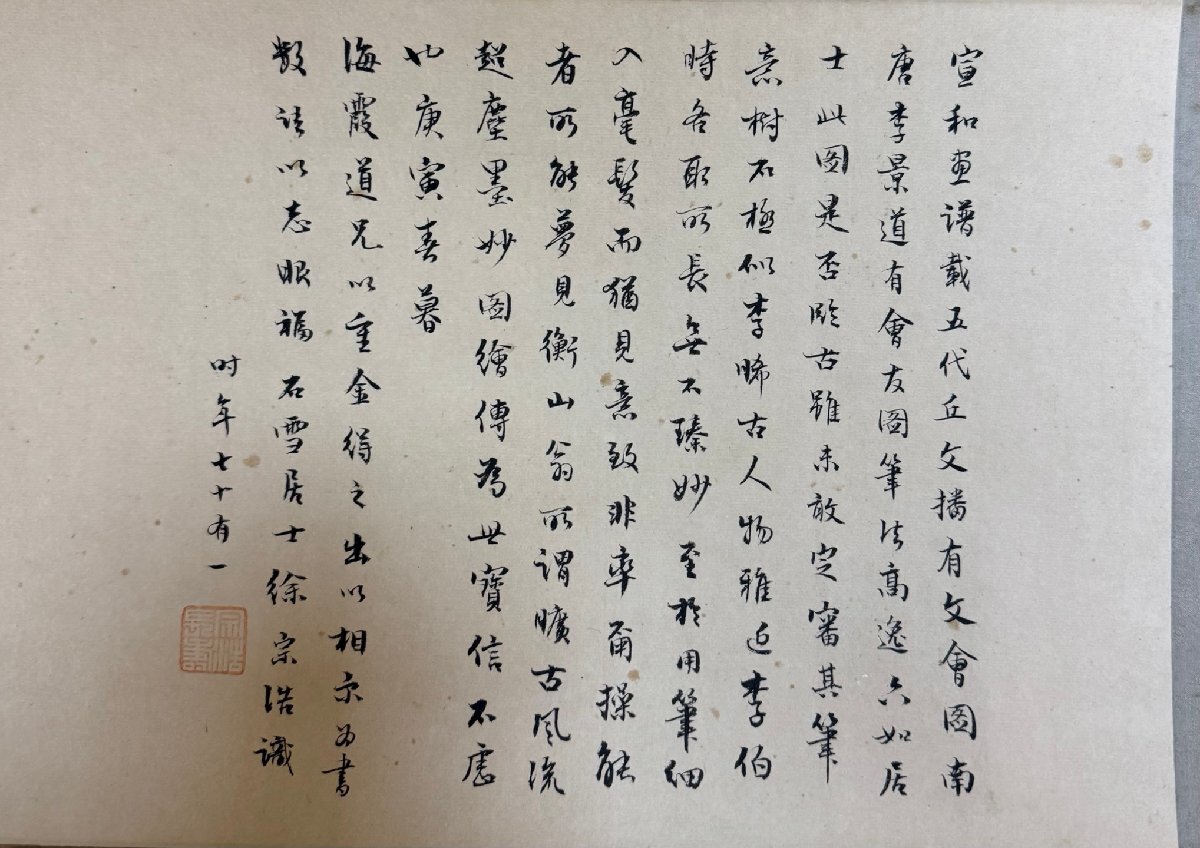 宣和畫譜載五代丘文播有文會圖南
唐李景道有會友圖筆法高逸六如居
士此圖是否臨古雖未敢定審其筆
意樹石極似李晞古人物雅近李伯
時各取所長無不臻妙至於用筆細
入毫髮而猶見意致非率爾操觚
者所能夢見衡山翁所謂曠古風流
超塵墨妙圖繪傳為世寶信不虛
也庚寅春暮
海霞道兄以重金得之出以相示為書
數語以志眼福石雪居士徐宗浩識
時年七十有一
宗浩長壽